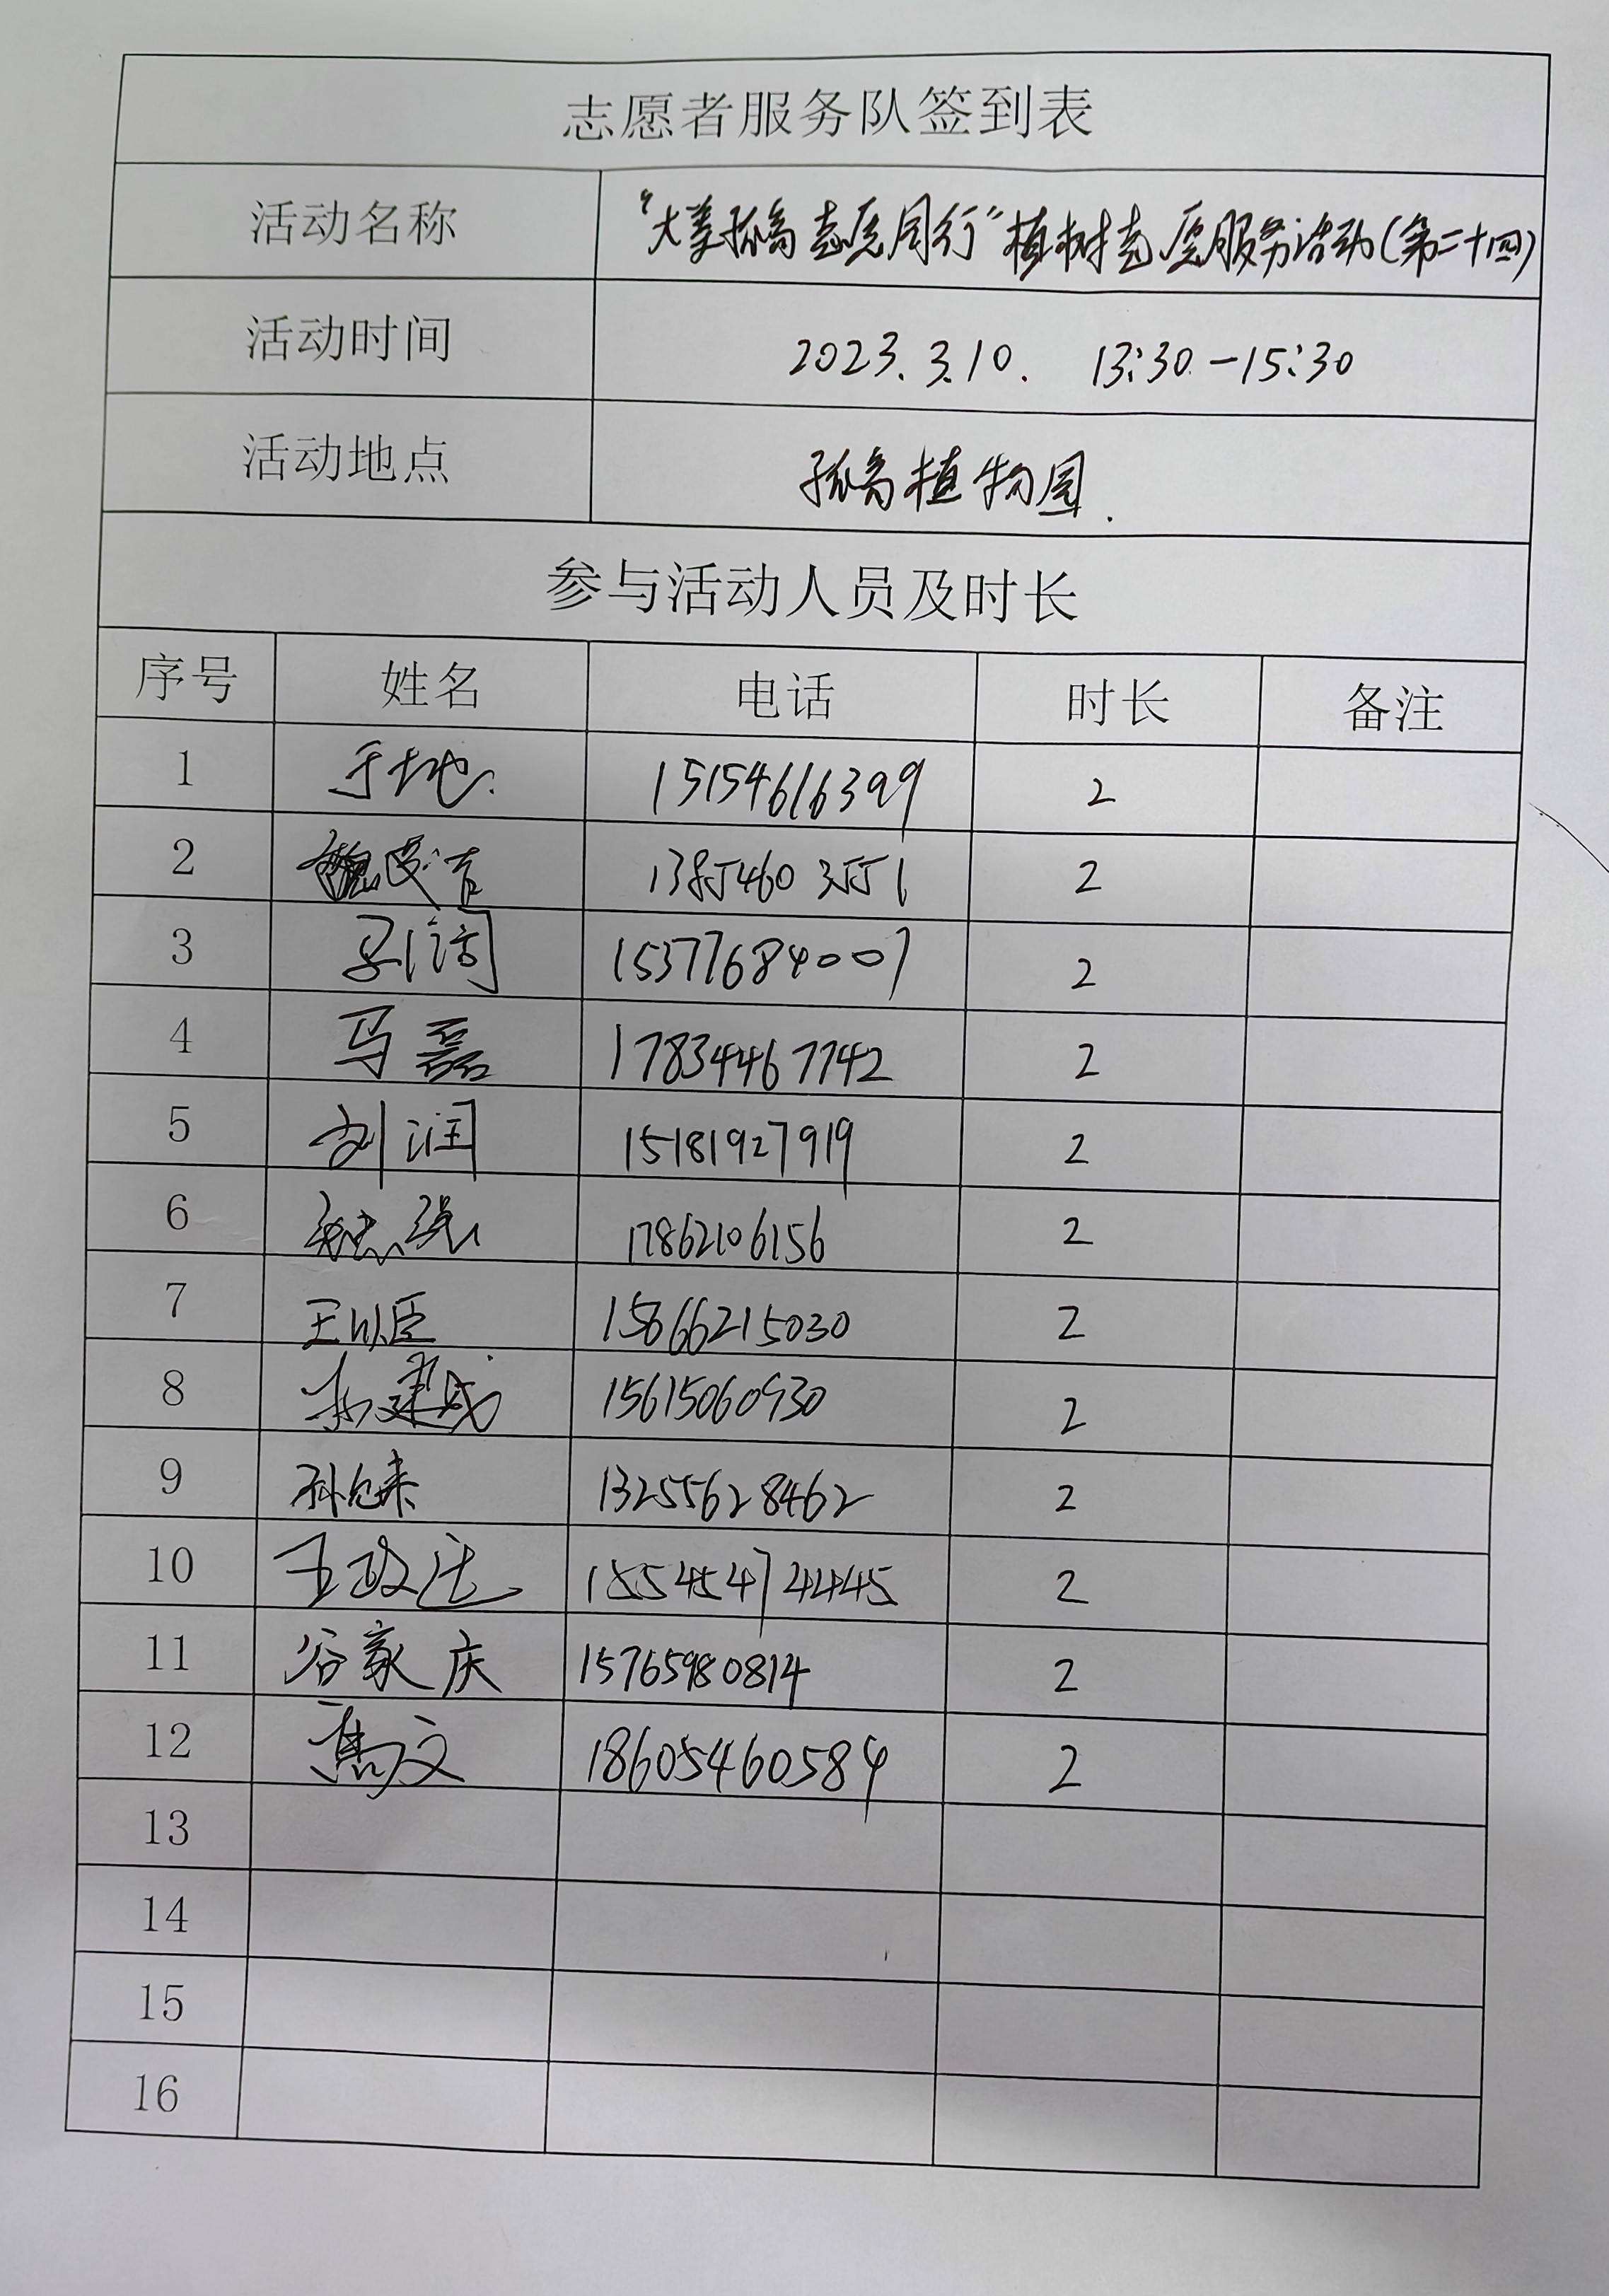 志愿者服务队签到表
活动名称 “大美孤岛 志愿同行”植树志愿服务活动(第二十四)
活动时间 2023.3.10. 13:30-15:30
活动地点 孤岛植物园.
参与活动人员及时长
序号 姓名 电话 时长 备注
1 于地 15154616399 2
2 13854603551 2
3 15377684007 2
4 马磊 17834467742 2
5 刘润 15181927919 2
6 17862106156 2
7 王以臣 15866215030 2
8 建成 15615060930 2
9 13255628462 2
10 王政法 18545474445 2
11 谷家庆 15765980814 2
12 高文 18605460584 2
13
14
15
16